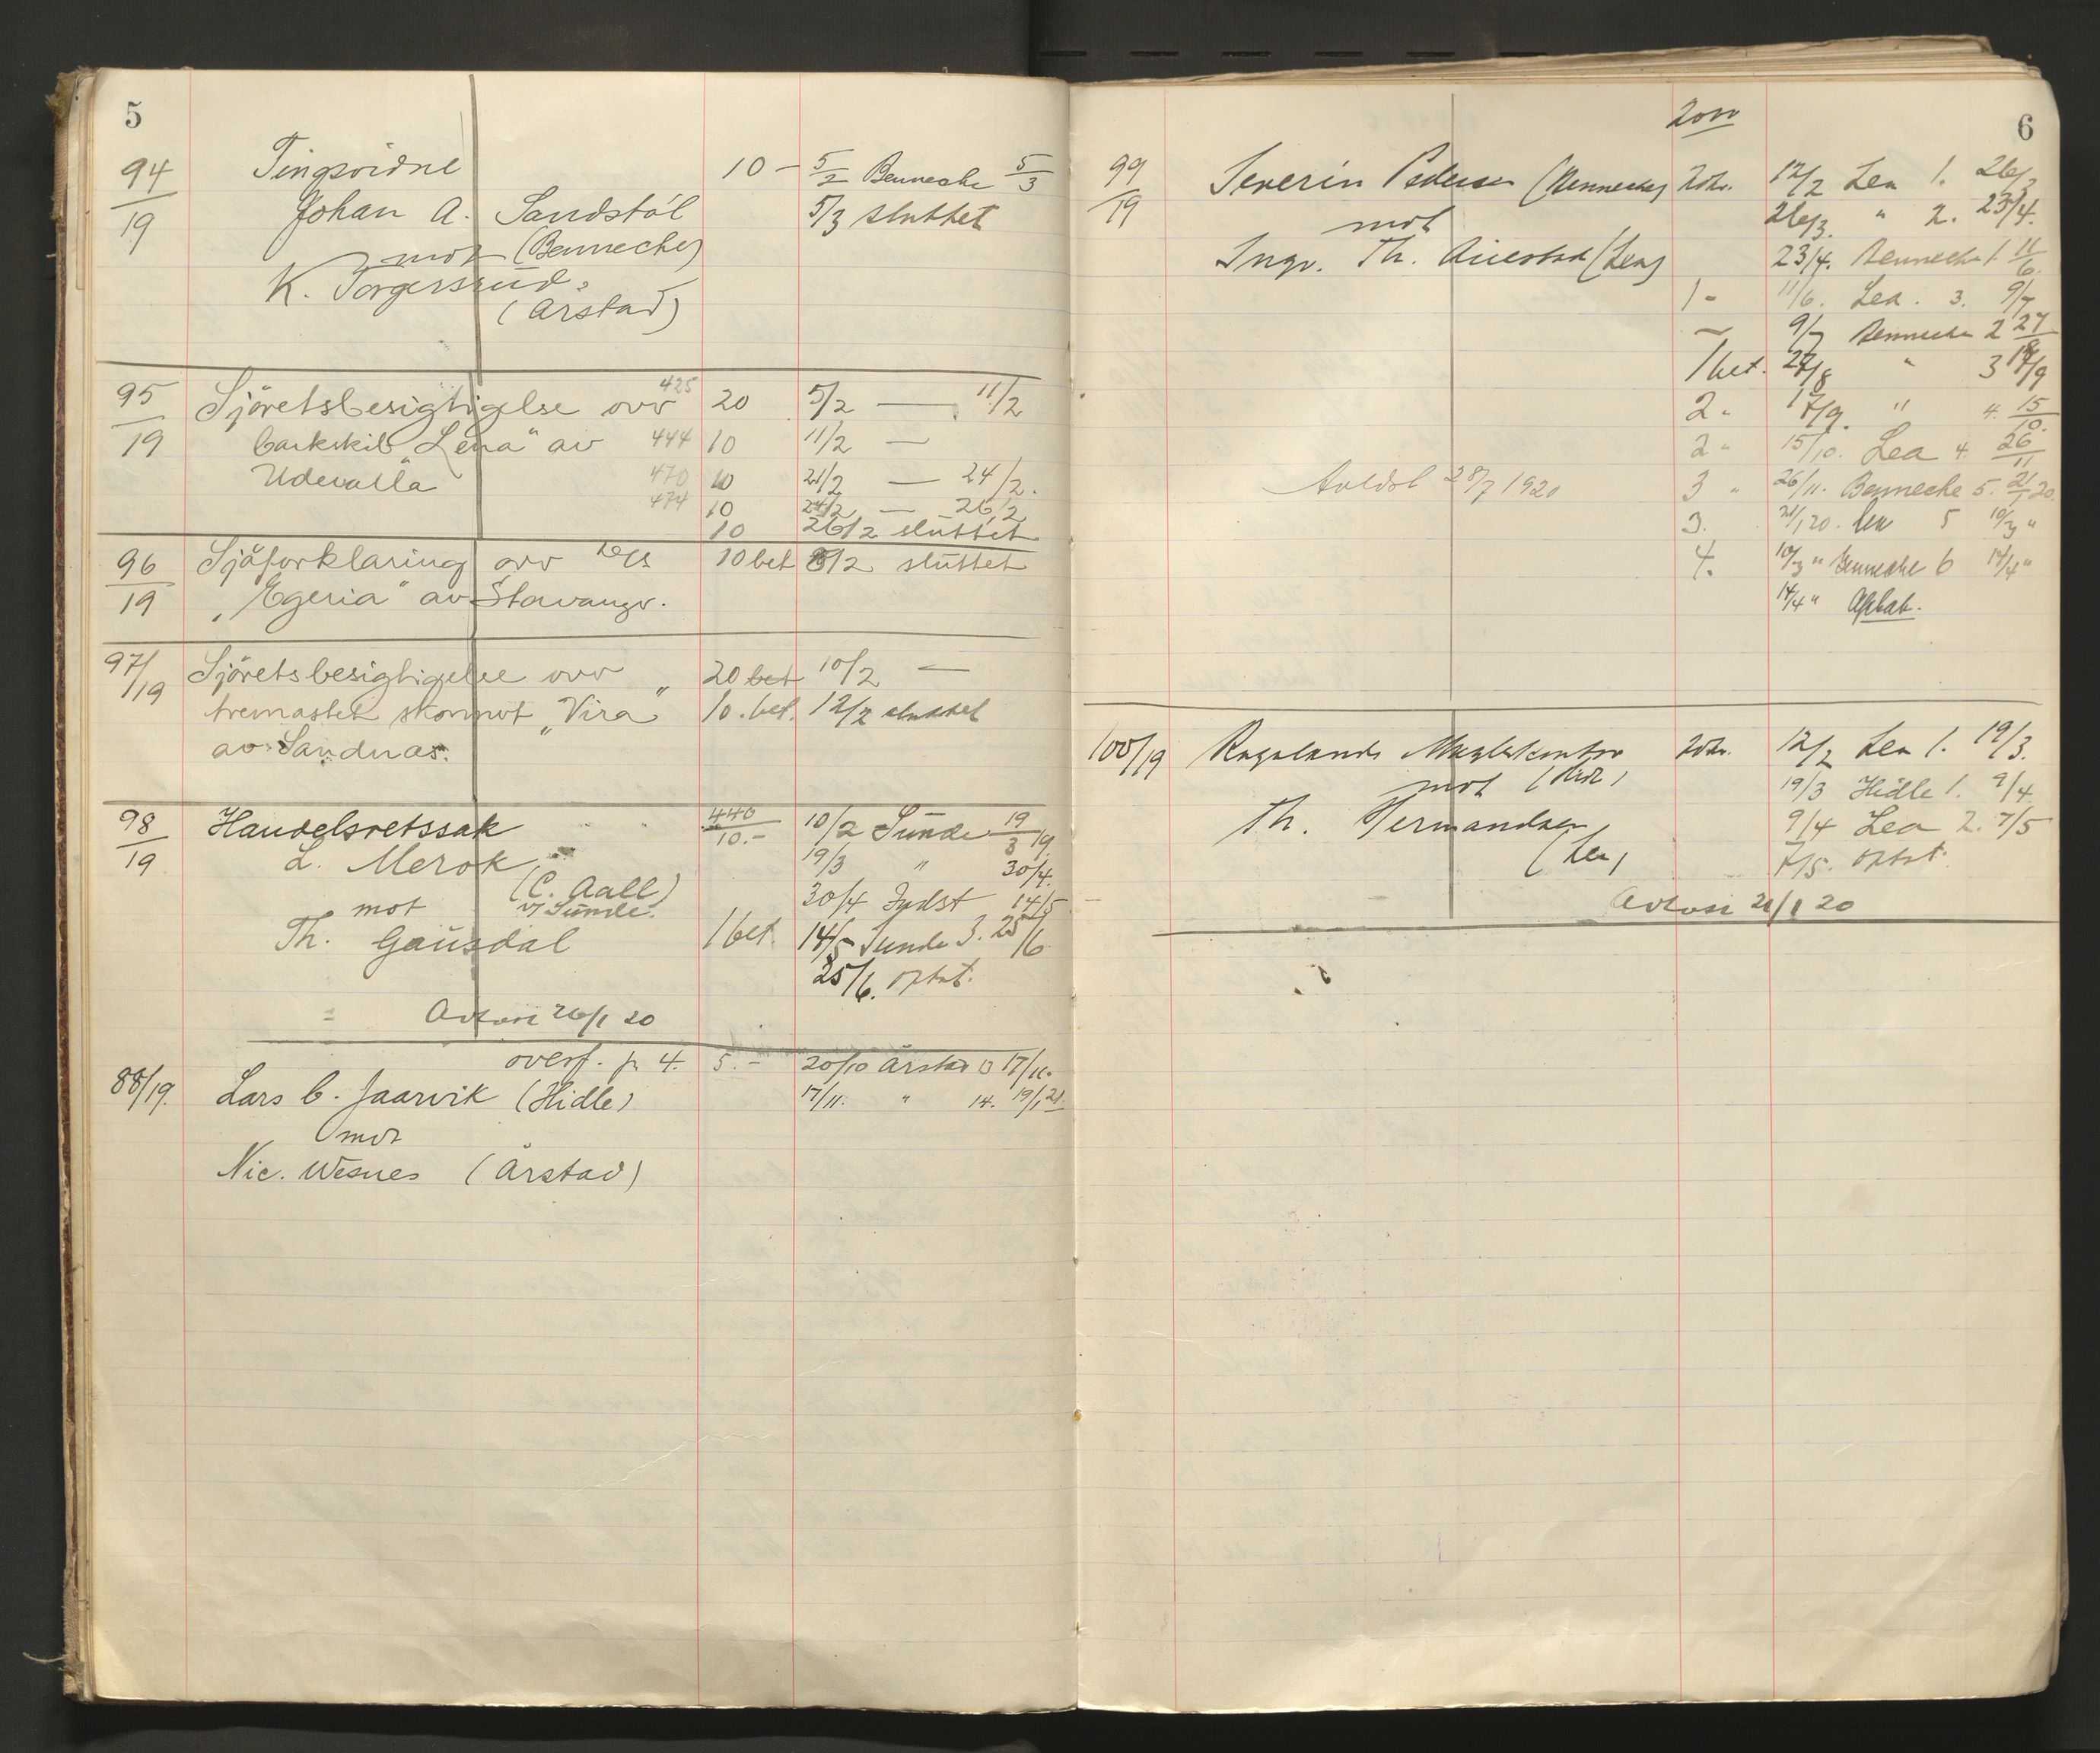 5
94/19 Tingsvidne 10 — 5/2 Benneche 5/3
Johan A. Sandstöl 5/3 sluttet
mot (Benneche)
K. Torgersrud
(Arstad)
95/19 Sjöretsbesigtigelse over 425 20 5/2 — 11/2
barkskib "Lena" av 444 10 11/2 —
Udevalla 470 10 21/2 — 24/2.
474 10 24/2 — 26/2
10 26/2 sluttet
96/19 Sjöforklaring over 10 bet 8/2 sluttet
"Egeria" av Stavanger.
97/19 Sjöretsbesigtigelse over 20 bet 10/2 —
tremastet skonnert "Vira" 10. bet. 12/2 sluttet
av Sandnæs.
98/19 Handelsretssak 440 10.- 10/2 Sunde 19/3 19
L. Merok 19/3 " 30/4.
(C. Aall) 30/4 Indst 14/5
mot v/ Sunde.
Th. Gausdal 1 bet. 14/5 Sunde 3. 25/6
25/6. optat.
26/1 20
overf. fr 4. 5.- 20/10 Årstad 13 17/11.
88/19. Lars C. Jaarvik (Hidle) 17/11. " 14. 19/1 21.
mot
Nic. Wesnes (Årstad)
6
99/19 Severin Pedersen (Benneche) 20 kr. 12/2 Lea 1. 26/3
mot 26/3. " 2. 23/4.
Ingv. Th. Auestad (Lea) 23/4. Benneche 1 11/6.
1 - 11/6. Lea. 3. 9/7
9/7 Benneche 2 27/8
1 bet. 27/8 " 3 17/9
2 " 17/9. " 4. 15/10.
2 " 15/10. Lea 4. 26/11
28/7 1920 3 " 26/11. Benneche 5. 21/1 20.
3. 21/1 20. Lea 5 10/3 "
4. 10/3 " Benneche 6 14/4 "
14/4 "
100/19 Rogalands Meglerkontor 20 kr. 12/2 Lea 1. 19/3.
mot (Hidle) 19/3 Hidle 1. 9/4
Th. Hermandsen 9/4 Lea 2. 7/5
(Lea) 7/5. optat.
21/1 20